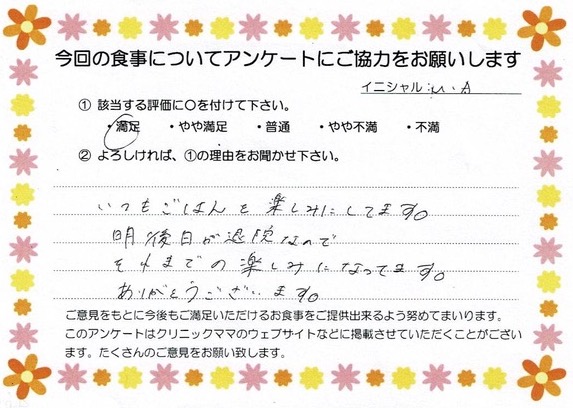 今回の食事についてアンケートにご協力をお願いします
イニシャル：M・A
① 該当する評価に○を付けて下さい。
・満足 ・やや満足 ・普通 ・やや不満 ・不満
② よろしければ、①の理由をお聞かせ下さい。
いつもごはんを楽しみにしてます。
明後日が退院なので
それまでの楽しみになってます。
ありがとうございます。
ご意見をもとに今後もご満足いただけるお食事をご提供出来るよう努めてまいります。
このアンケートはクリニックママのウェブサイトなどに掲載させていただくことがござい
ます。たくさんのご意見をお願い致します。